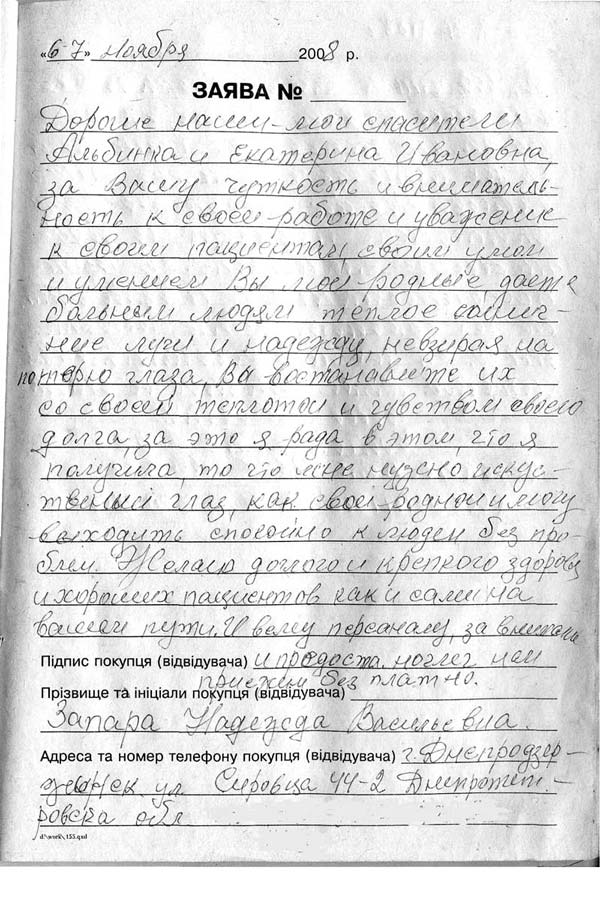 «6-7» Ноября 2008 р.
ЗАЯВА № ________
Дорогие наши-мои спасители
Альбинка и Екатерина Ивановна,
за Вашу чуткость и внематель-
ность к своей работе и уважение
к своим пациентам, своим умом
и умением Вы мои родные, даете
больным людям тёплое солнеч-
ные лучи и надежду, невзирая на
потерю глаза, Вы востанавлете их
со своей теплотой и чувством своего
долга, за это я рада в этом, что я
получила, то что мне нужно искус-
твеный глаз, как свой родной и могу
выходить спокойно к людям без про-
блем. Желаю долгого и крепкого здоровя
и хороших пациентов как и сами на
вашем пути. И всему персоналу, за внимание
Підпис покупця (відвідувача) и
приёмы без платно.
Прізвище та ініціали покупця (відвідувача)
Запара Надежда Васильевна.
Адреса та номер телефону покупця (відвідувача) г. Днепродзер-
жинск ул. Сировца 44-2 Днепропет-
ровска обл
d:\work\.155.qxd